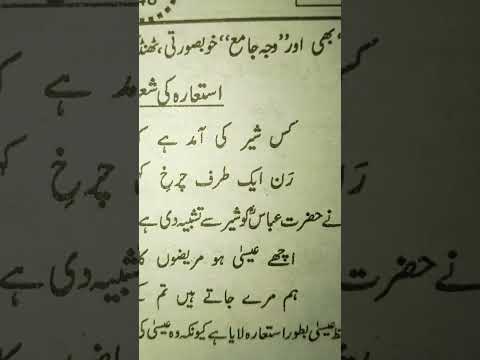 بھی اور ”وجہ جامع“ خوبصورتی، ٹھنڈ
استعارہ کی شع
کس شیر کی آمد ہے ک
رَن ایک طرف چرخِ ک
نے حضرت عباسؓ کو شیر سے تشبیہ دی ہے
اچھے عیسٰی ہو مریضوں کا
ہم مرے جاتے ہیں تم ک
عیسٰی بطور استعارہ لایا ہے کیونکہ وہ عیسٰی کی